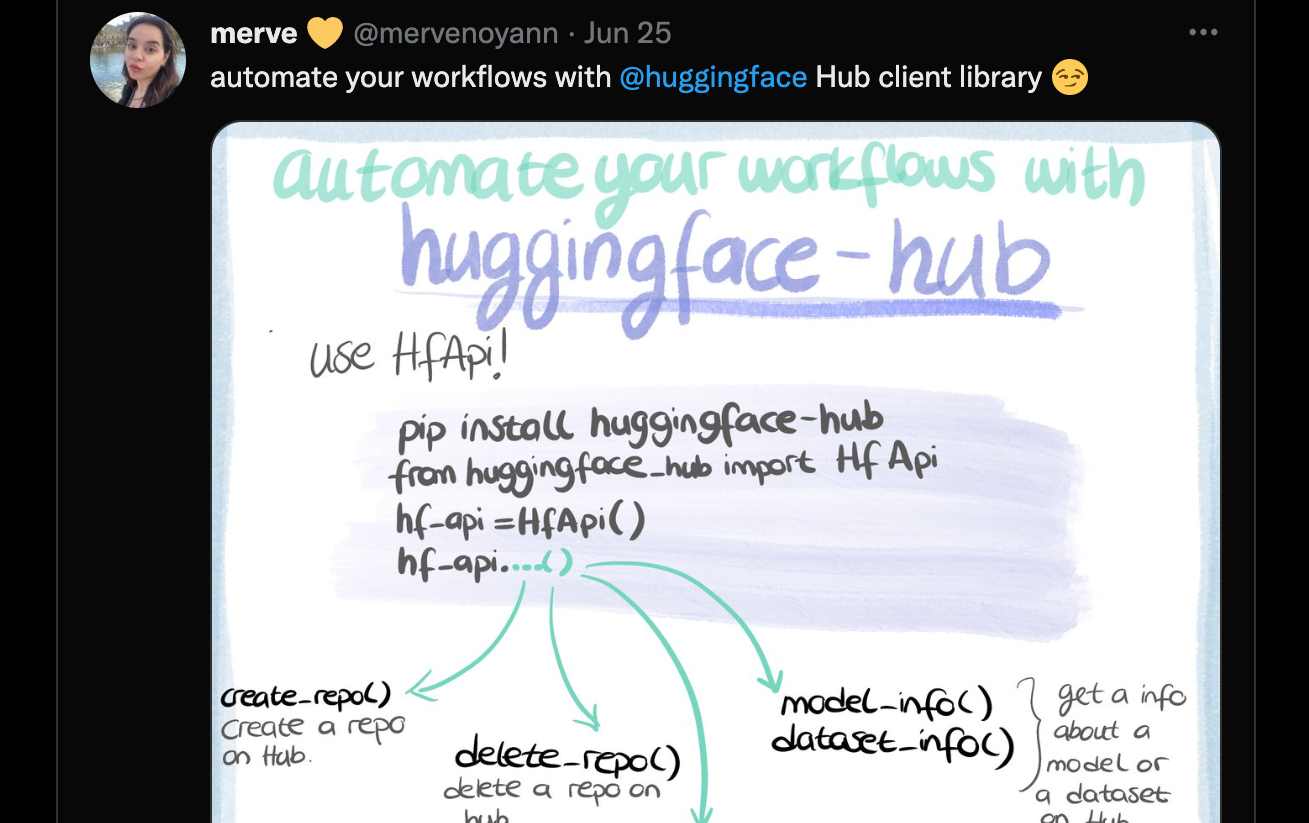 merve 💛 @mervenoyann · Jun 25
automate your workflows with @huggingface Hub client library 😏
automate your workflows with
huggingface-hub
use HfApi!
pip install huggingface-hub
from huggingface_hub import HfApi
hf-api = HfApi()
hf-api....()
create_repo()
Create a repo
on Hub.
delete_repo()
delete a repo on
hub
model_info()
dataset_info()
get a info
about a
model or
a dataset
on Hub